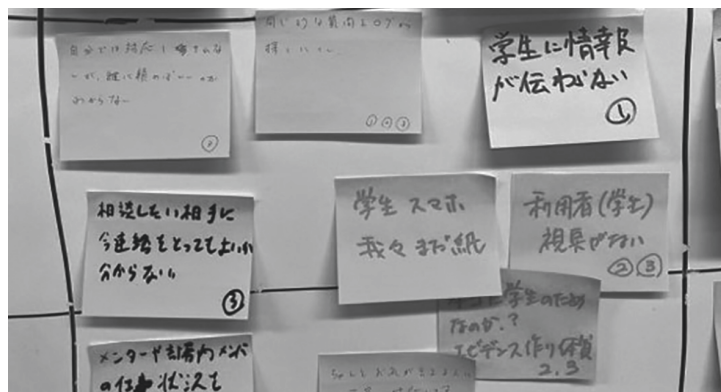 自分では対応しきれな
いが、誰に頼めばいいのか
わからない
②
同じような質問もログが
探しにくい
①②③
学生に情報
が伝わらない
①
相談したい相手に
今連絡をとってもよいか
分からない
③
学生 スマホ
我々まだ紙
利用者(学生)
視点がない
②③
学生のため
なのか?
エビデンス作り体質
2.3
メンターや部署内メンバ
の仕事状況を